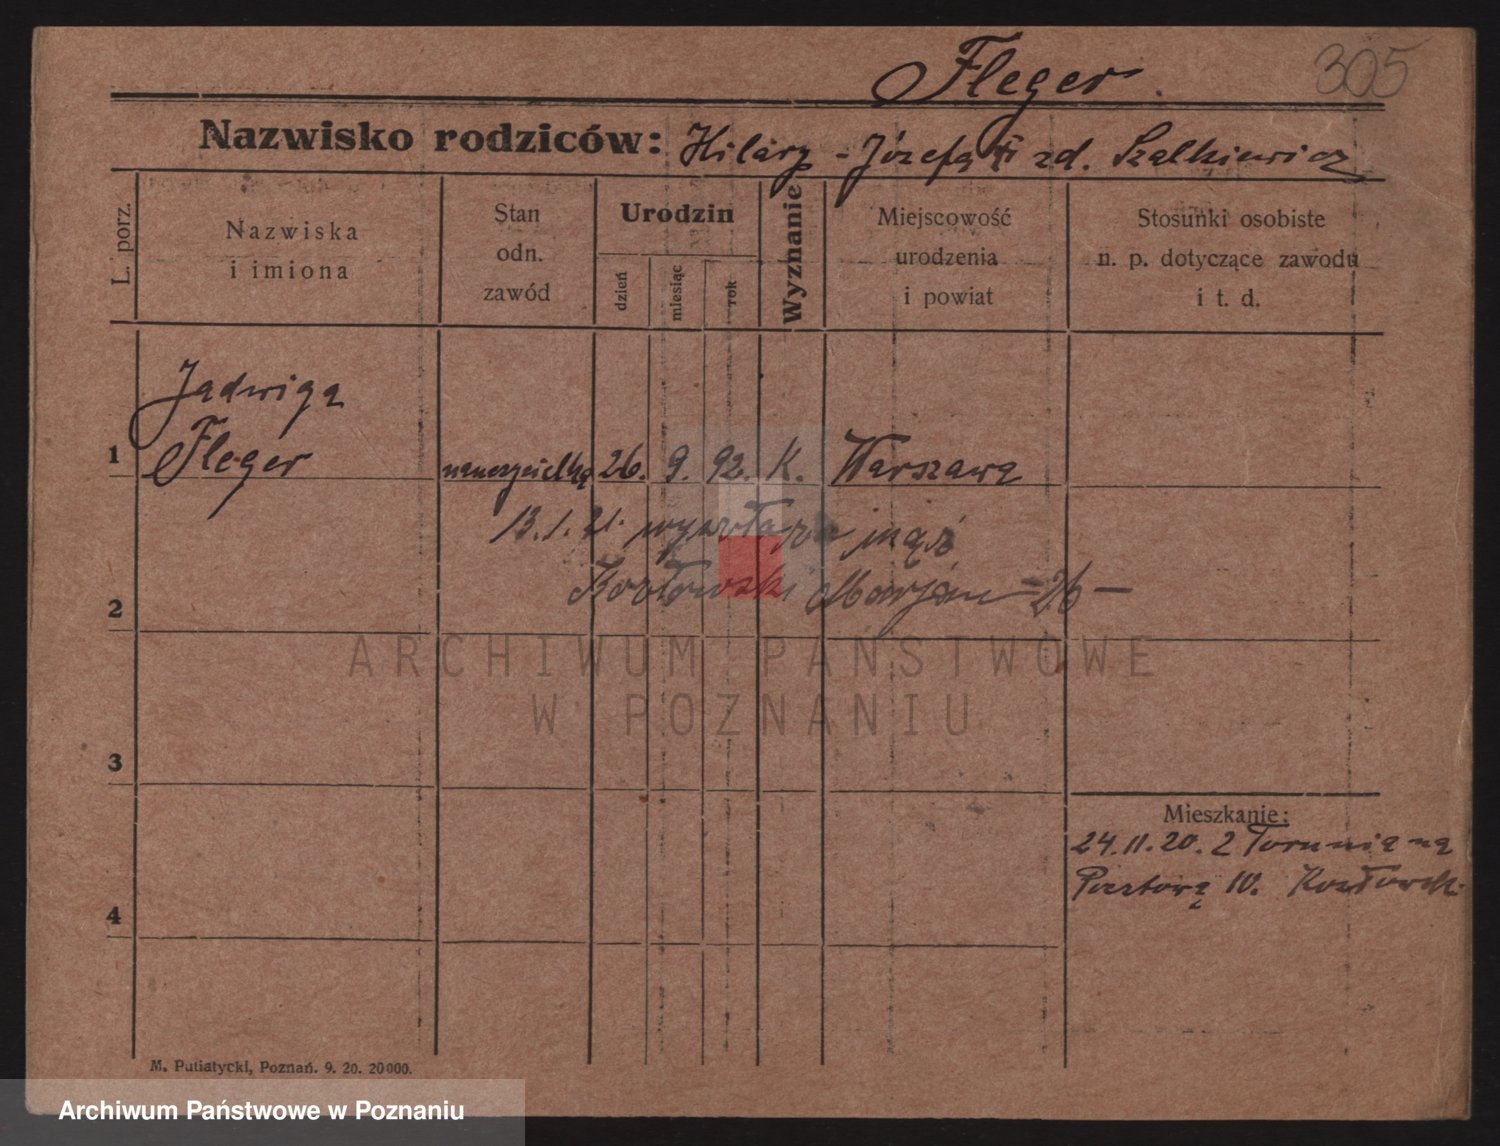 Fleger.
305
Nazwisko rodziców: Hilary - Józefa zd. Szalkiewicz
L. porz.
Nazwiska
i imiona
Stan
odn.
zawód
Urodzin
dzień
miesiąc
rok
Wyznanie
Miejscowość
urodzenia
i powiat
Stosunki osobiste
n. p. dotyczące zawodu
i t. d.
Jadwiga
1 Fleger nauczycielka 26. 9. 92. K. Warszawa
13.1.21. wyszła za mąż
2 Kozłowski Marjan =26—
ARCHIWUM PAŃSTWOWE
W POZNANIU
3
Mieszkanie:
24.11.20. z Torunia na
Pocztową 10. Kozłowski
4
M. Putiatycki, Poznań. 9. 20. 20000.
Archiwum Państwowe w Poznaniu